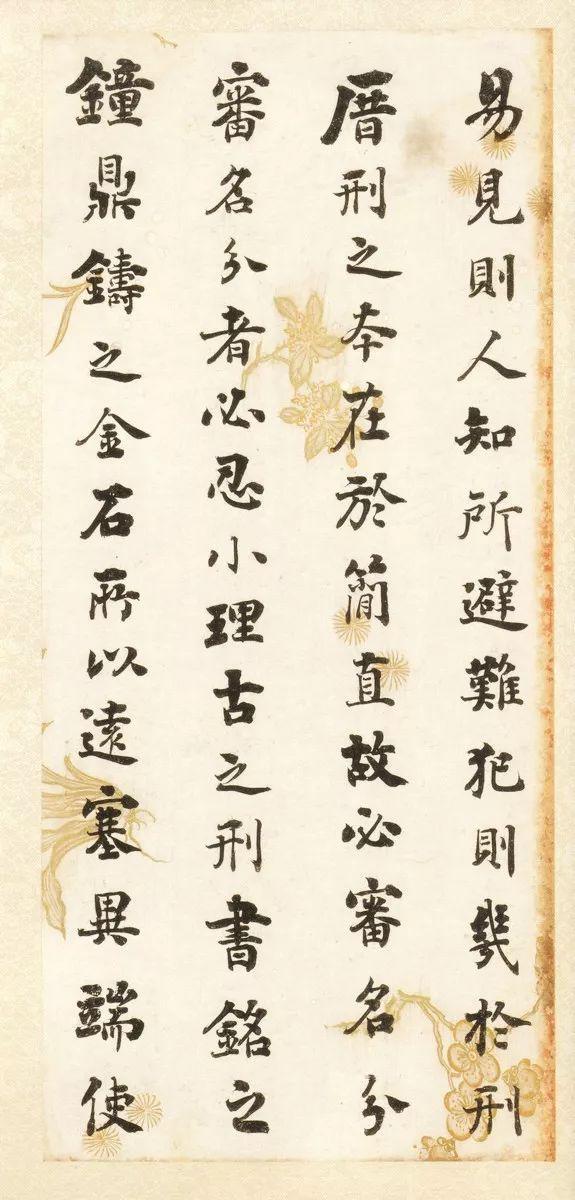 易見則人知所避難犯則幾於刑
厝刑之本在於簡直故必審名分
審名分者必忍小理古之刑書銘之
鐘鼎鑄之金石所以遠塞異端使